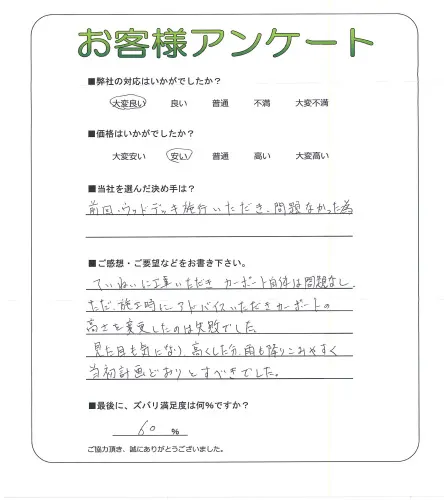 お客様アンケート
■弊社の対応はいかがでしたか？
大変良い 良い 普通 不満 大変不満
■価格はいかがでしたか？
大変安い 安い 普通 高い 大変高い
■当社を選んだ決め手は？
前回、ウッドデッキ施行いただき、問題なかった為
■ご感想・ご要望などをお書き下さい。
ていねいに工事いただき カーポート自体は問題なし。
ただ、施工時にアドバイスいただきカーポートの
高さを変更したのは失敗でした。
見た目も気になり、高くした分、雨も降りこみやすく
当初計画どおりとすべきでした。
■最後に、ズバリ満足度は何％ですか？
60 ％
ご協力頂き、誠にありがとうございました。